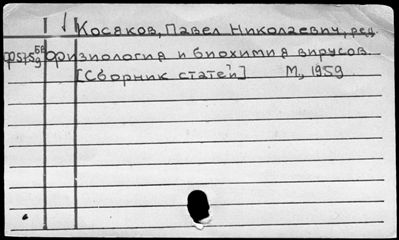 Косяков, Павел Николаевич, ред.
Физиология и биохимия вирусов
[Сборник статей] М., 1959